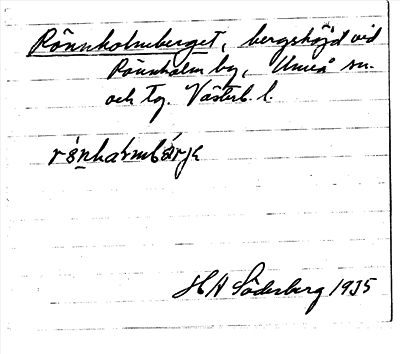 Rönnholmberget, bergshöjd vid
Rönnholm by, Umeå sn.
och tg. Västerb. l.
H A Söderberg 1935